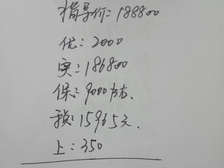 指导价：188800
优：2000
实：186800
保：9000左右
预：15965元
上：350